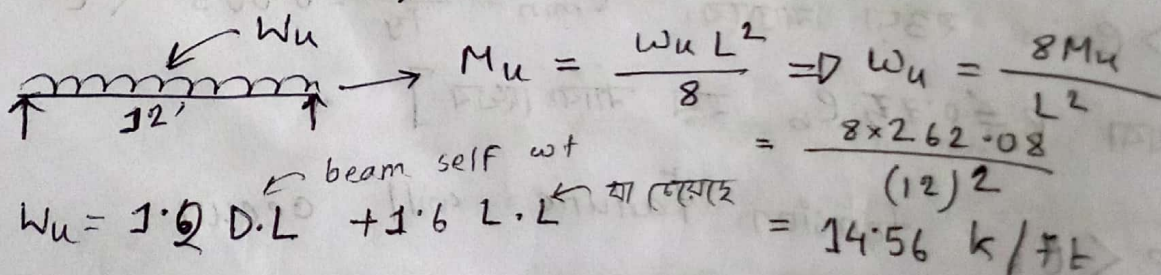 Wu
12'
Mu = Wu L² / 8 => Wu = 8Mu / L²
= 8×262.08 / (12)2
= 14.56 k/ft
beam self wt
Wu = 1.2 D.L + 1.6 L.L ← যা